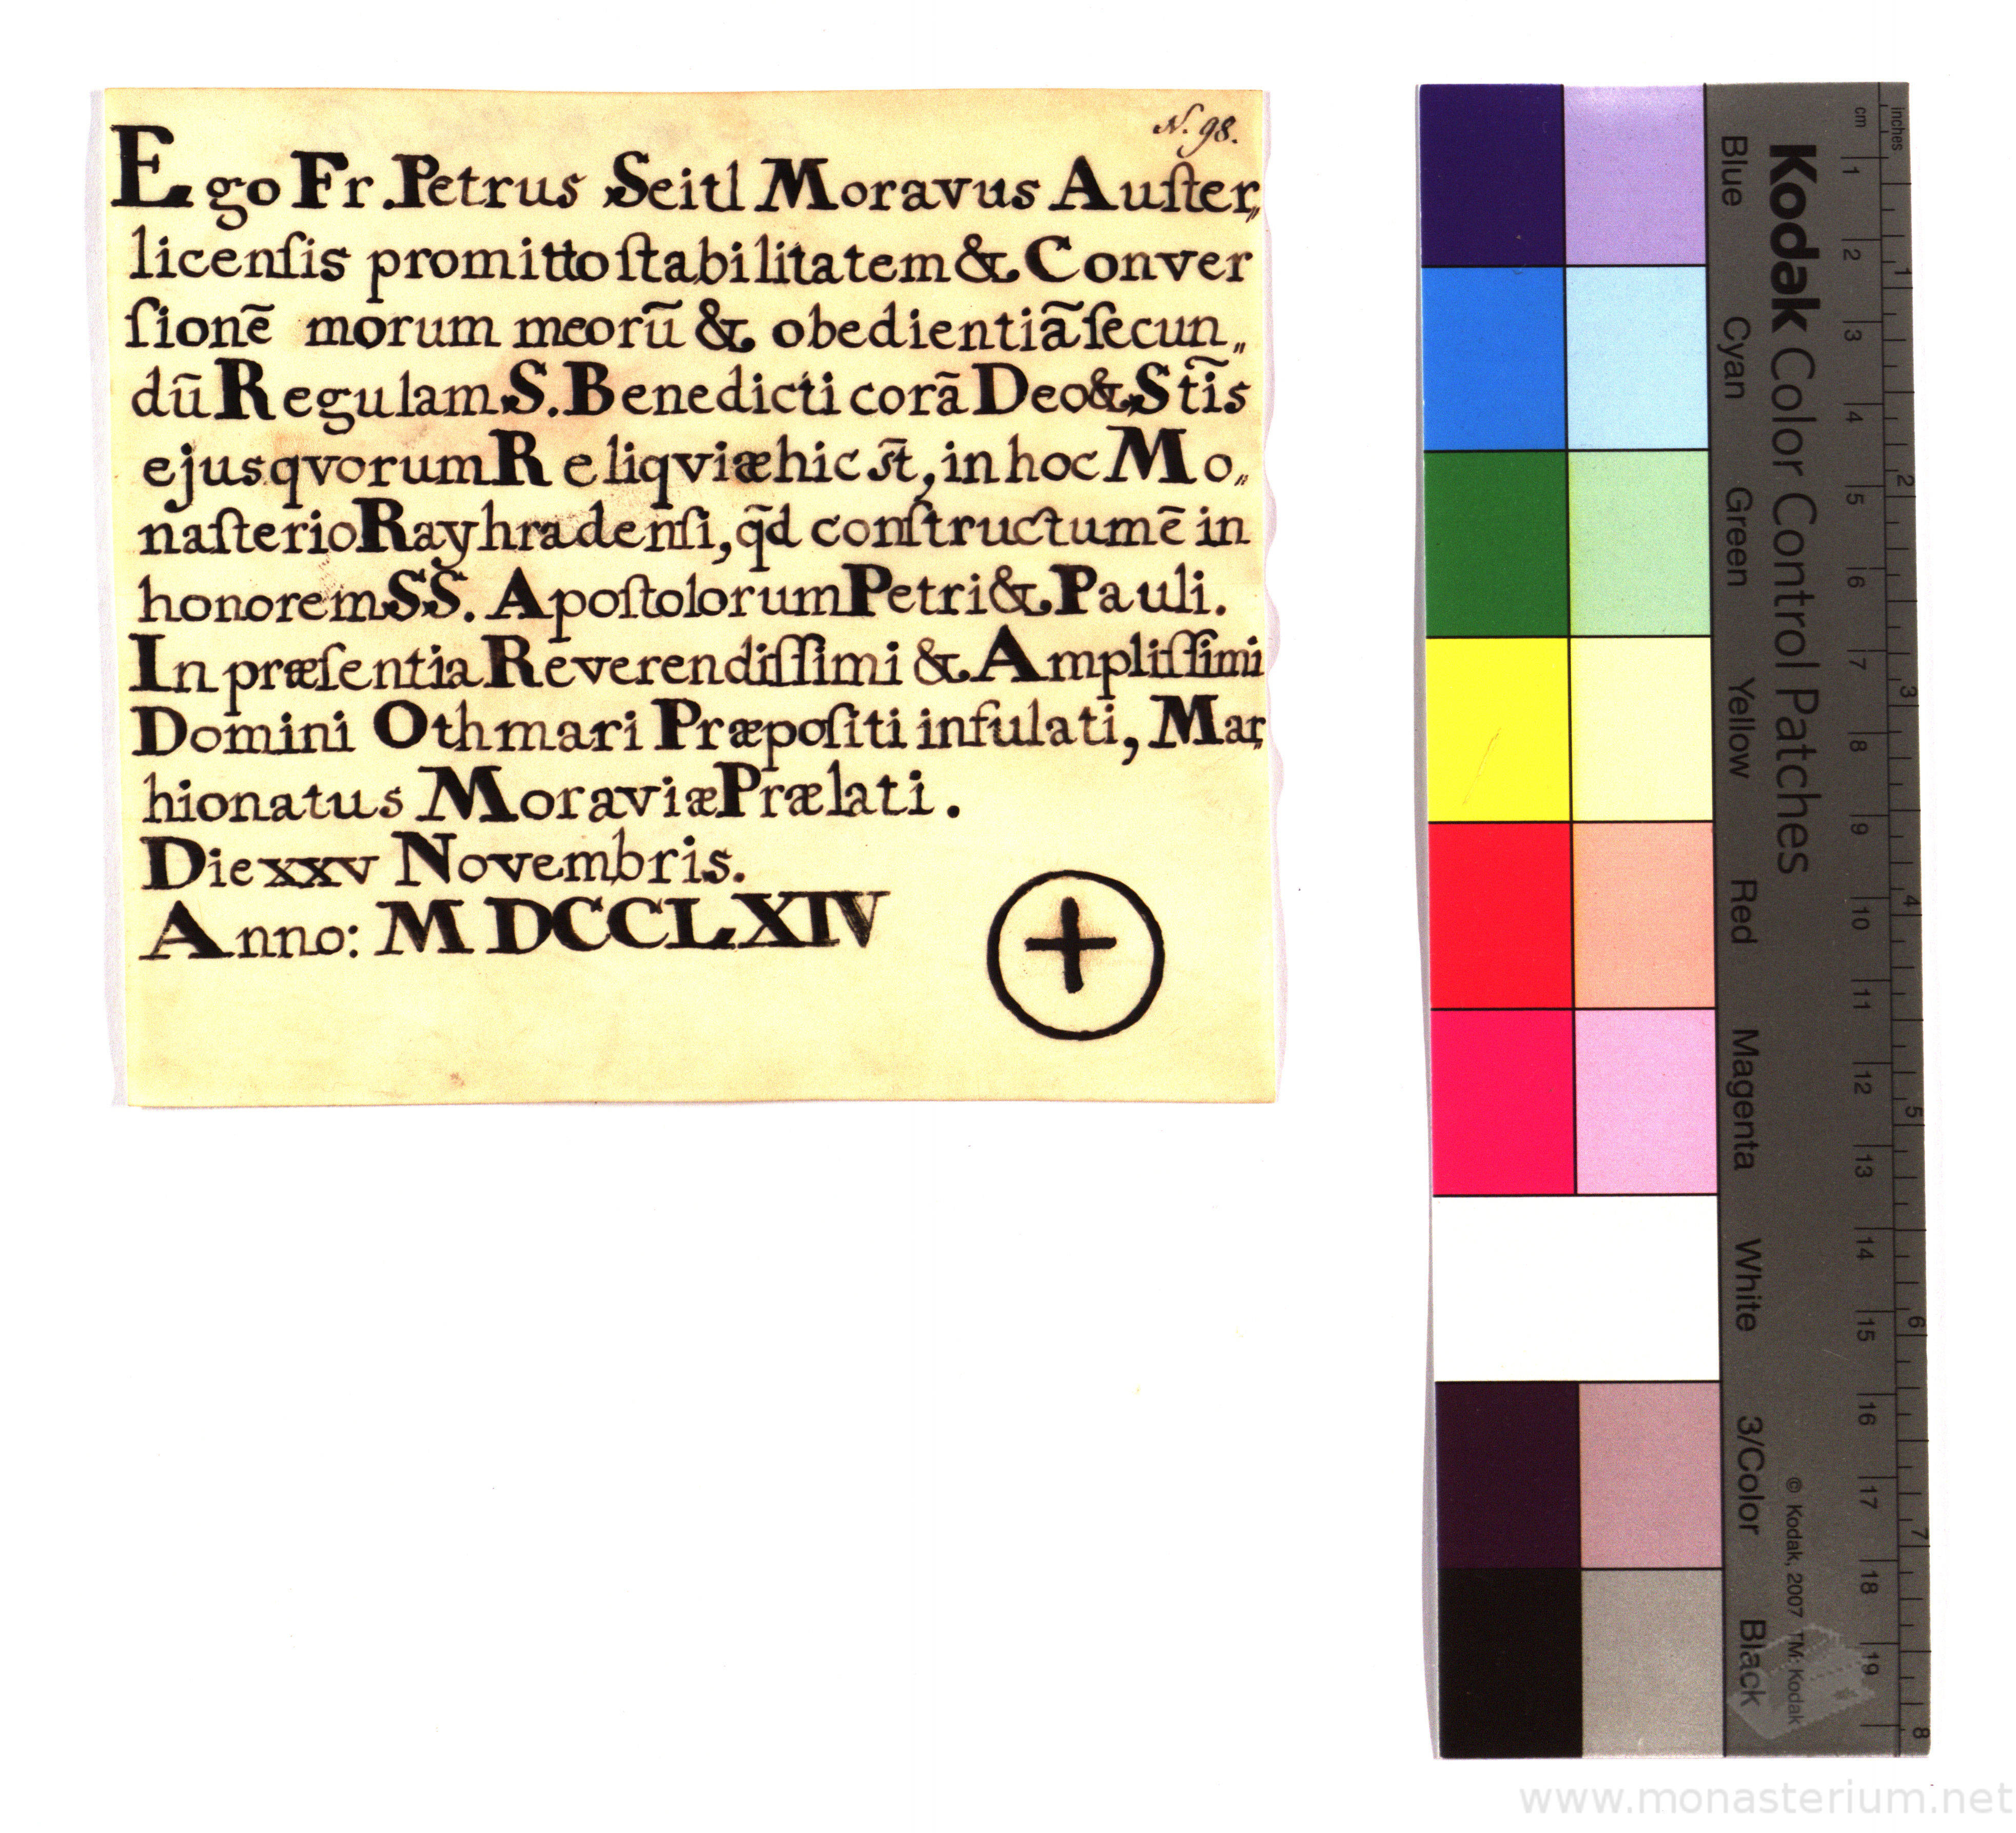 N. 98.
Ego Fr. Petrus Seitl Moravus Auſter„
licenſis promitto ſtabilitatem & Conver
ſionē morum meorū & obedientiā ſecun„
dū Regulam S. Benedicti corā Deo & St̄is
ejus qvorum Reliqviæ hic s̄t, in hoc Mo„
naſterio Rayhradenſi, q̄d conſtructum ē in
honorem SS. Apoſtolorum Petri & Pauli.
In præſentia Reverendiſſimi & Ampliſſimi
Domini Othmari Præpoſiti infulati, Mar„
hionatus Moraviæ Prælati.
Die xxv Novembris.
Anno: MDCCLXIV
Kodak Color Control Patches
Blue Cyan Green Yellow Red Magenta White 3/Color Black
© Kodak, 2007 TM: Kodak
cm 1 2 3 4 5 6 7 8 9 10 11 12 13 14 15 16 17 18 19
inches 1 2 3 4 5 6 7 8
www.monasterium.net